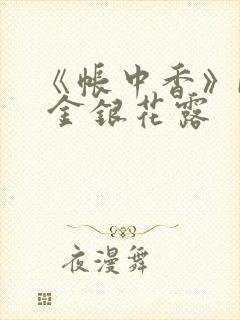 《帐中香》
金银花露
夜漫舞